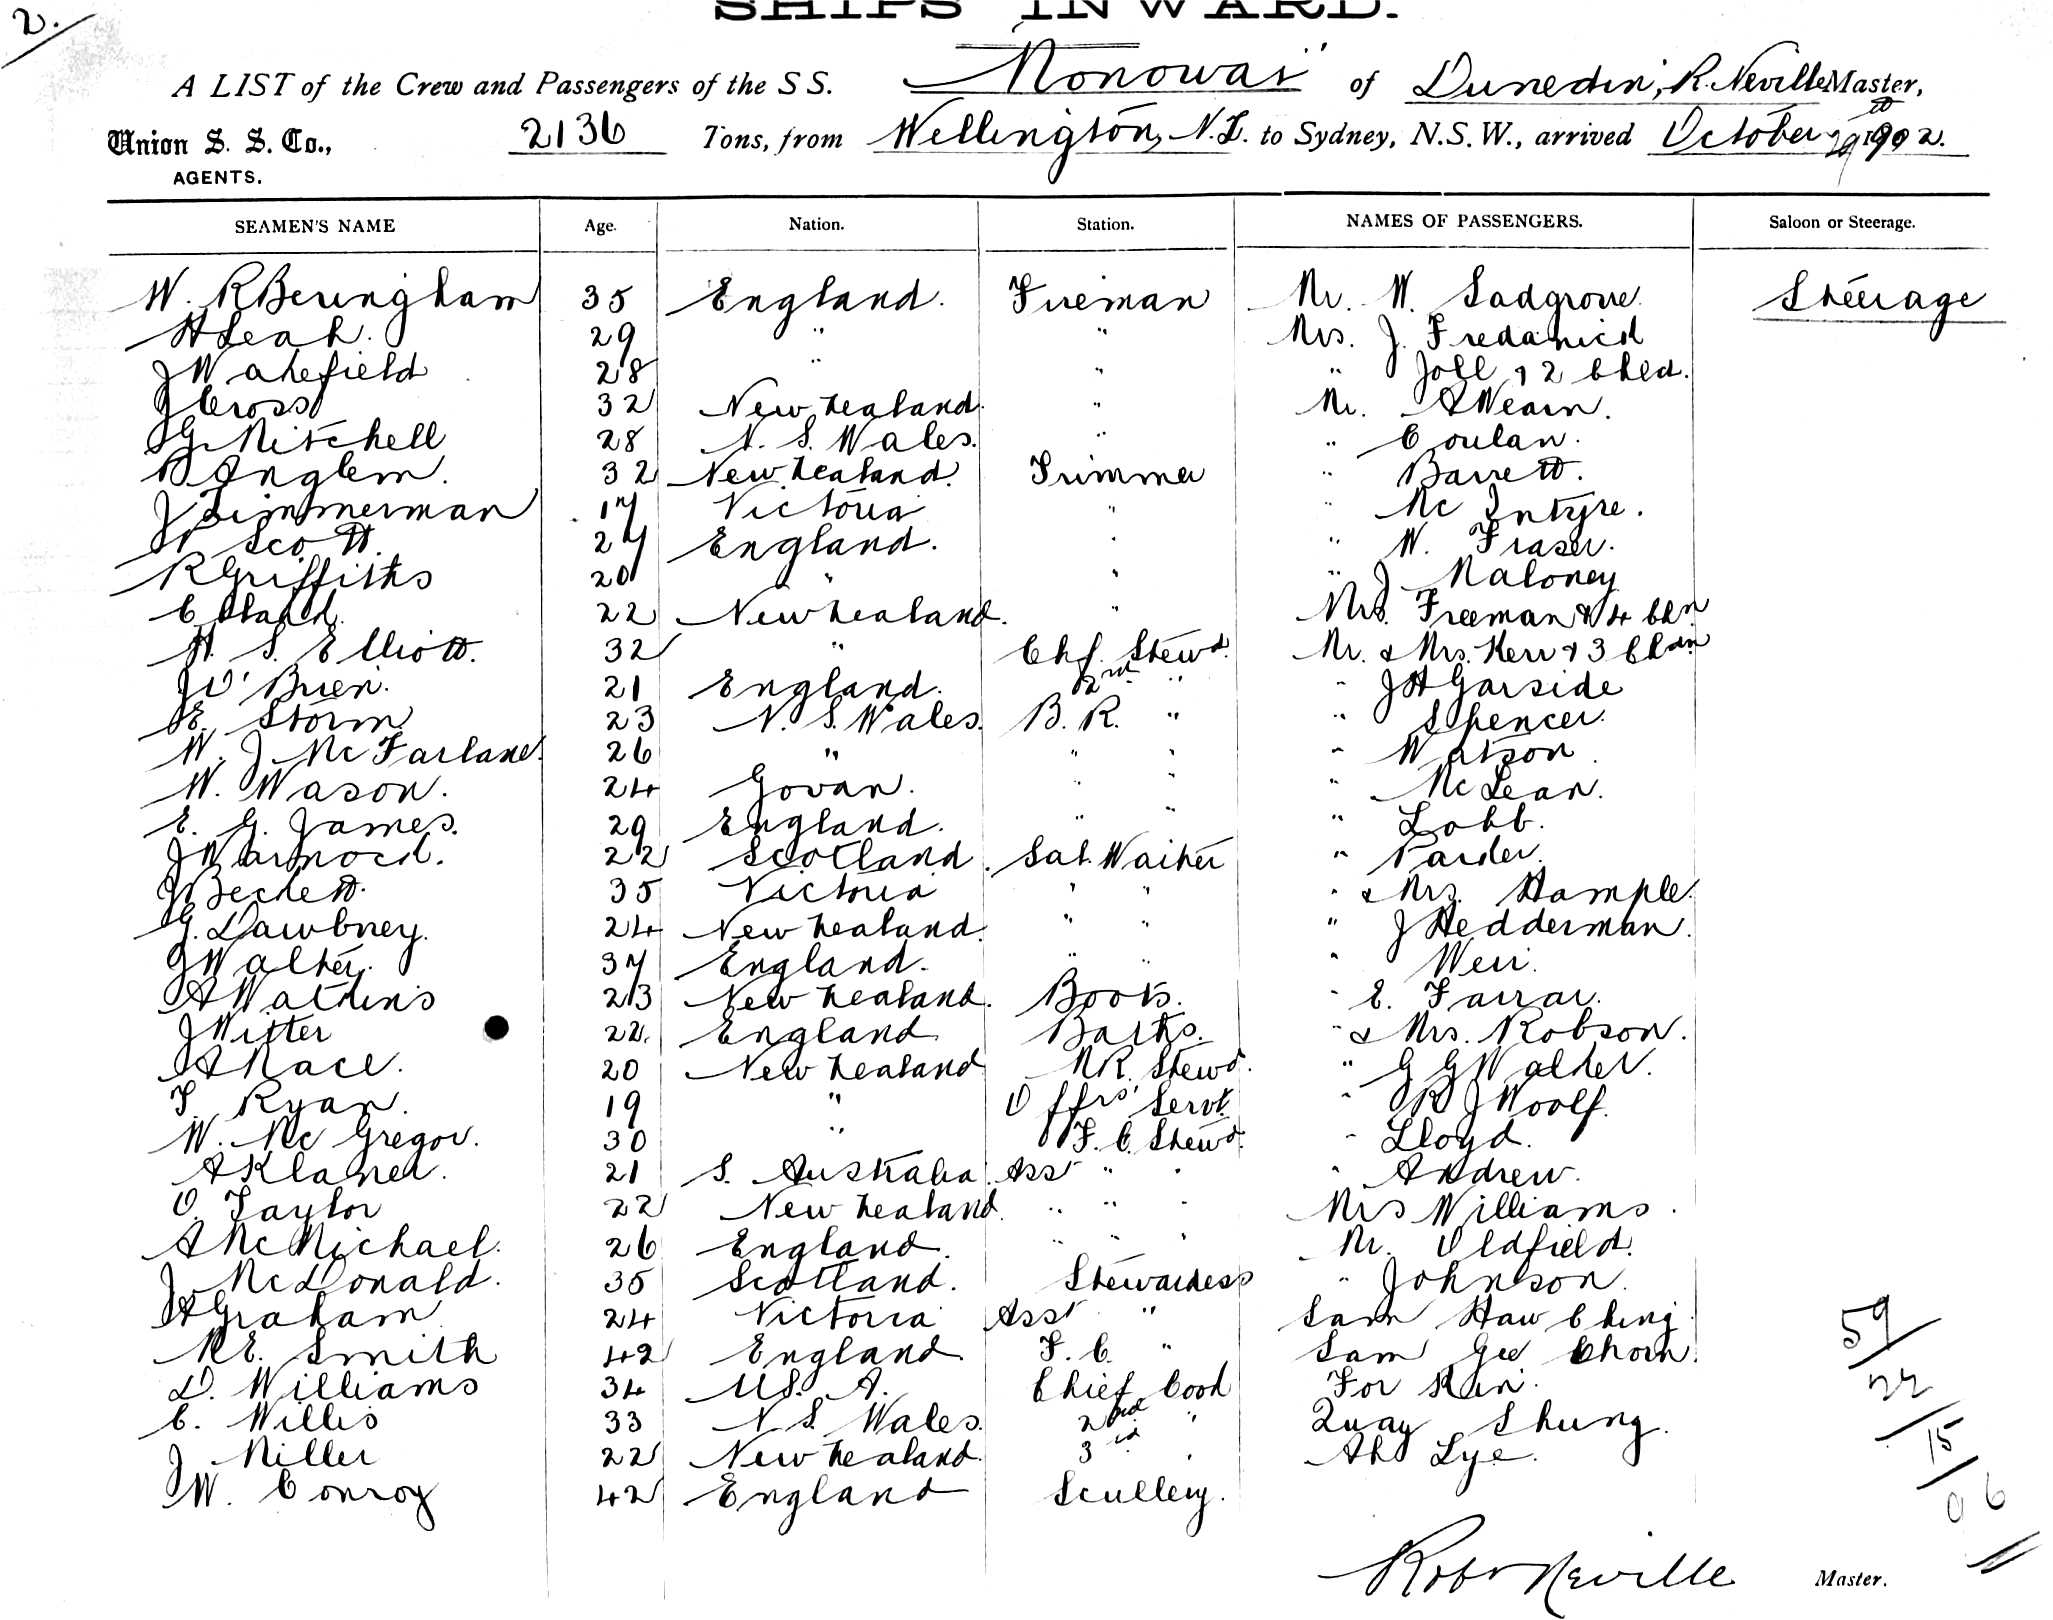 2.
SHIPS INWARD.
A LIST of the Crew and Passengers of the S S. "Monowai" of Dunedin, R. Neville Master,
Union S. S. Co., 2136 Tons, from Wellington, N.Z. to Sydney, N.S.W., arrived October 29th 1902.
AGENTS.
SEAMEN'S NAME Age. Nation. Station. NAMES OF PASSENGERS. Saloon or Steerage.
W. R Beringham 35 England. Fireman Mr. W. Sadgrove. Steerage
H Leah. 29 " " Mrs. J. Fredarick
J Wakefield 28 " " " Joll & 2 Chld.
J Cross 32 New Zealand. " Mr. A Wearn.
G Mitchell 28 N. S. Wales. " " Coulan.
B Anglem. 32 New Zealand. Trimmer " Barrett.
J Zimmerman 17 Victoria " " Mc Intyre.
W Scott 27 England. " " W. Fraser.
R Griffiths 20 " " " J Maloney
C Bland. 22 New Zealand. " Mrs. Freeman & 4 Chn
H. S. Elliott. 32 " Chf. Stewd. Mr. & Mrs. Kerr & 3 Chdn
J O'Brien. 21 England. 2nd " " J H Garside
E. Storm 23 N. S. Wales. B. R. " " Spencer.
W. J. McFarlane. 26 " " " " Watson
W. Wason. 24 Govan. " " " McLean.
E. G. James. 29 England. " " " Lobb.
J Warnock. 22 Scotland. Sal. Waiter " Parder.
J Beckett. 35 Victoria " " " & Mrs. Hample.
G. Dawbney. 24 New Zealand. " " " J Hedderman.
J Walter. 37 England. " " " Weir.
A Watkins 23 New Zealand. Boots. " E. Farrar.
J Witter 22. England Baths. " & Mrs. Robson.
A Race. 20 New Zealand M R. Stewd. " G G Walker.
T. Ryan. 19 " Offrs' Servt. " R J Woolf.
W. Mc Gregor. 30 " F. C. Stewd. " Lloyd.
A Klaner. 21 S. Australia. Asst " " " Andrew.
O. Taylor 22 New Zealand. " " " Mrs Williams.
A McMichael. 26 England. " " " Mr. Oldfield.
J. McDonald. 35 Scotland. Stewardess " Johnson.
H Graham 24 Victoria Asst " Sam Haw Ching.
M E. Smith 42 England F. C. " Sam Gee Chorn.
D. Williams 34 U.S. A. Chief Cook For Kin.
C. Willis 33 N S. Wales. 2nd " Quay Shung.
J Miller 22 New Zealand. 3rd " Ah Lye.
W. Conroy 42 England Scullery.
59/22/15/06
Robt Neville Master.